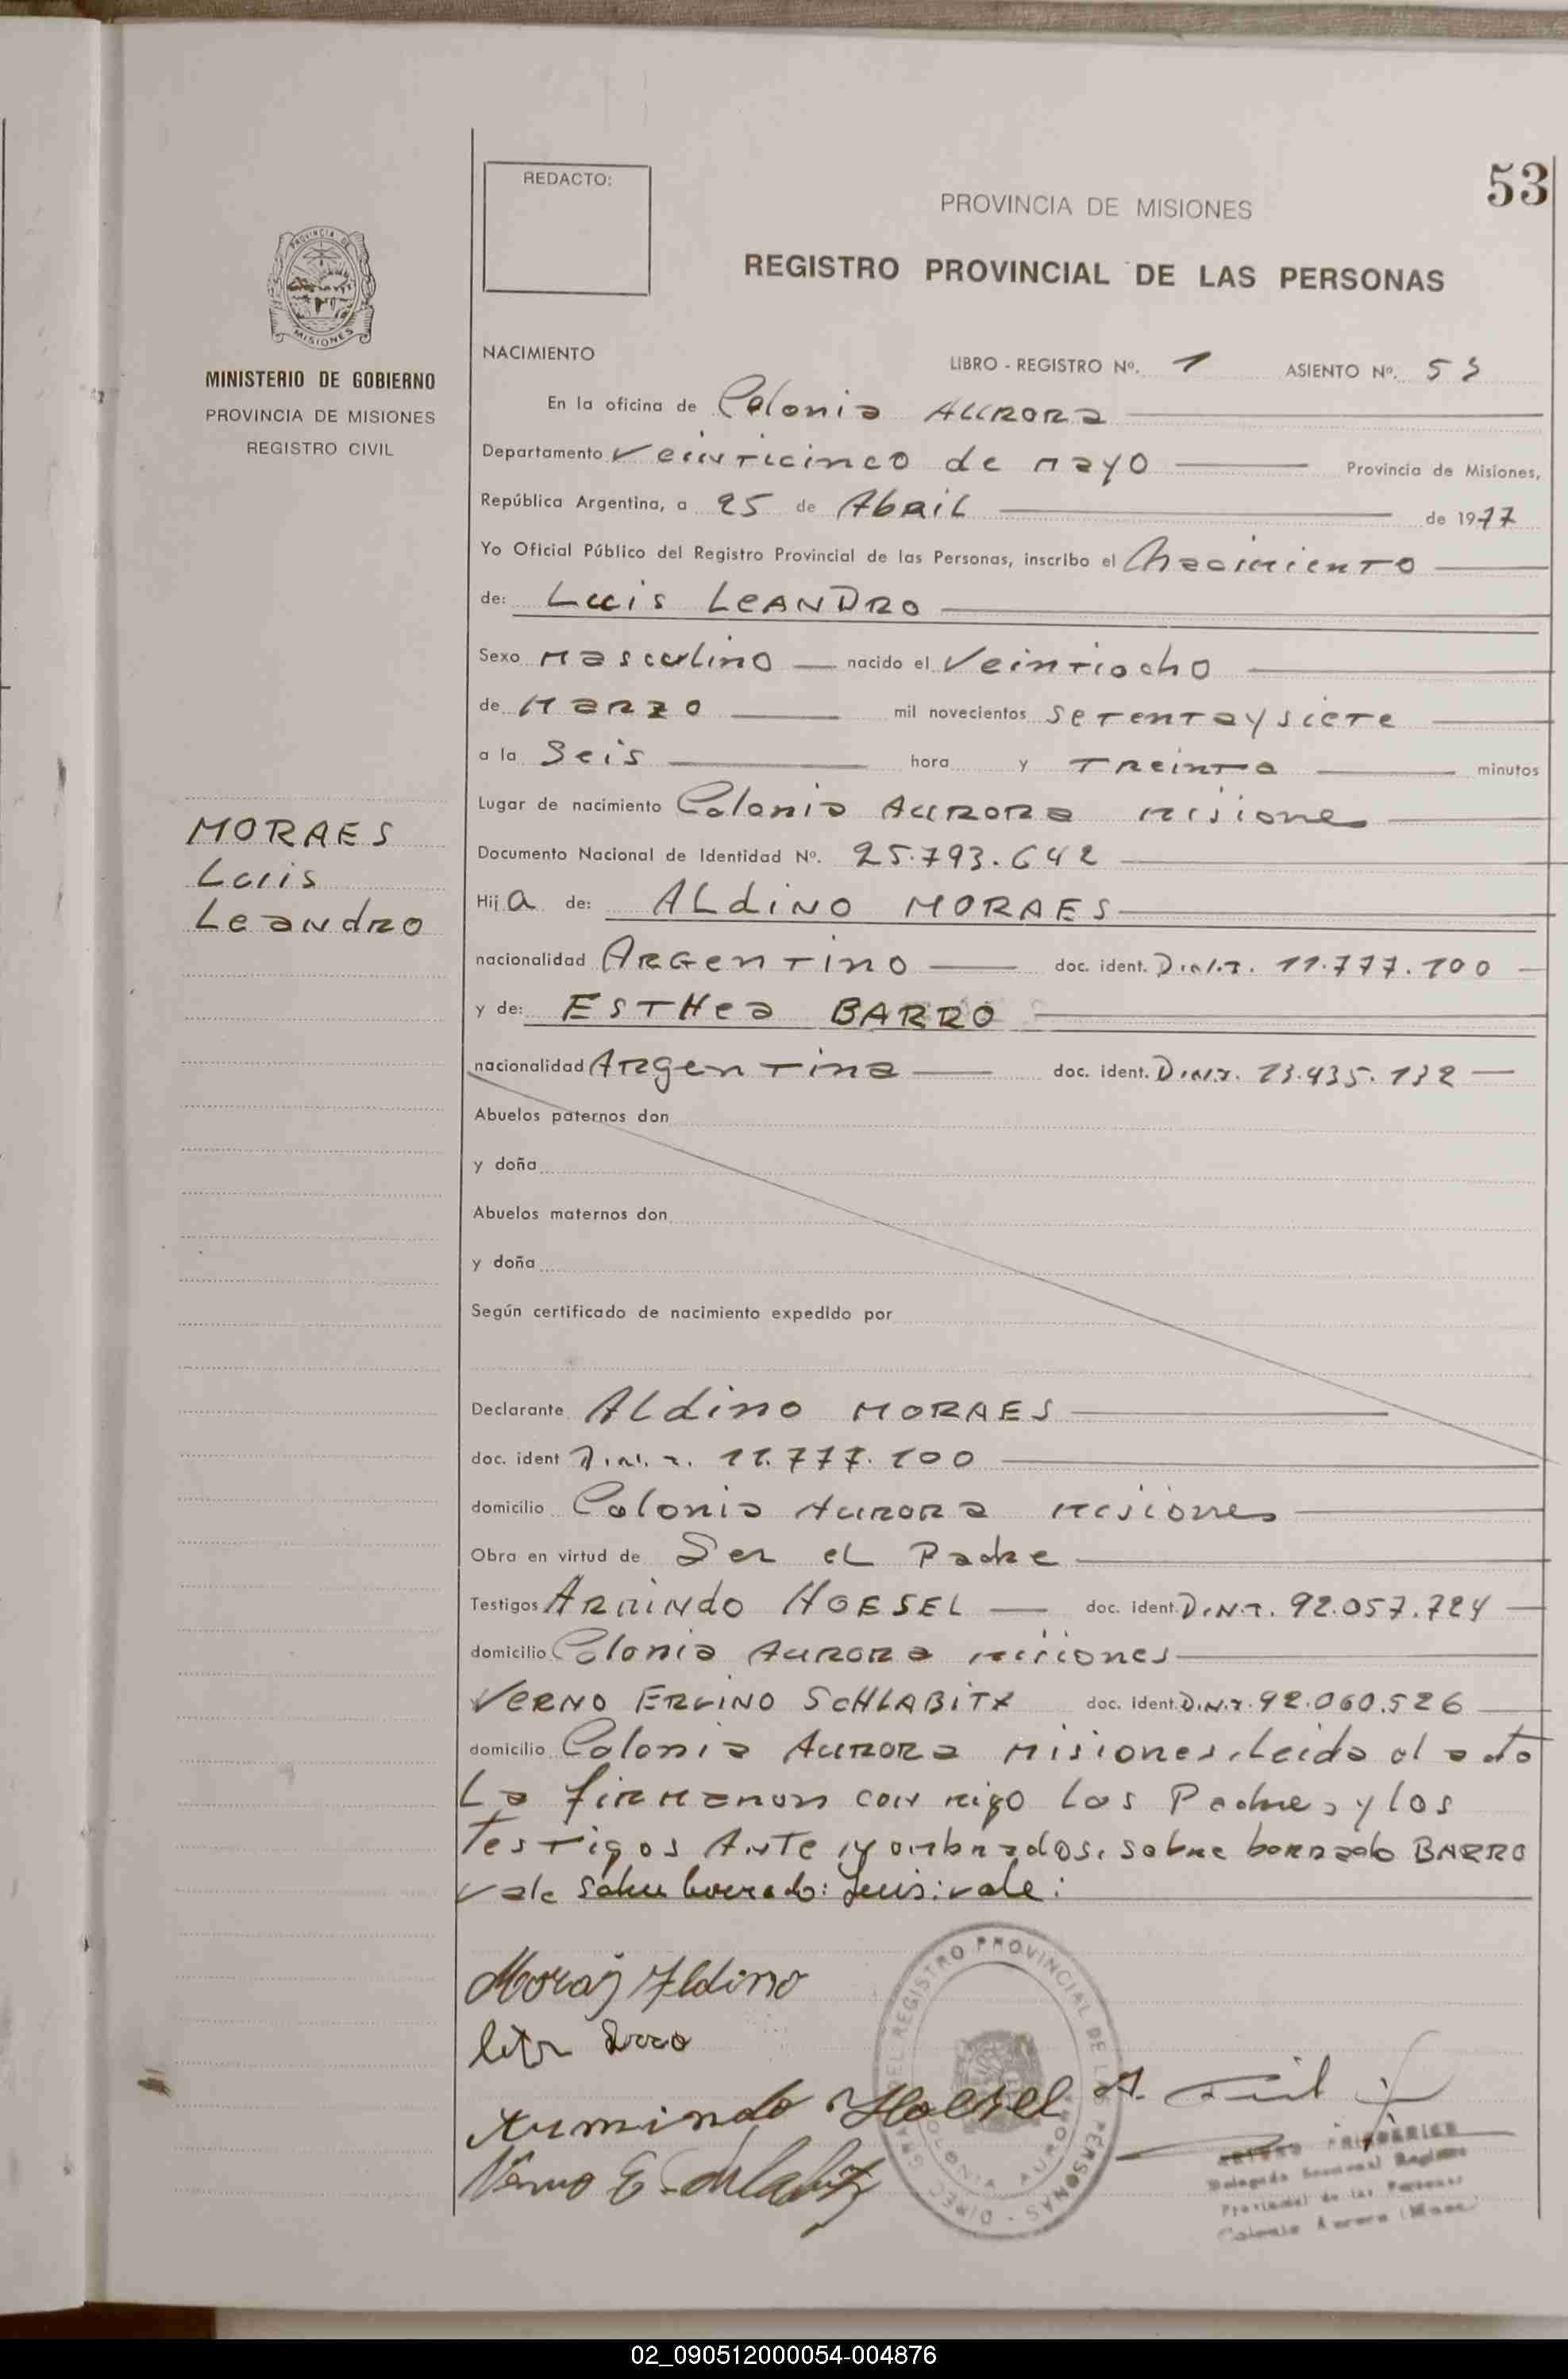 REDACTO:
53
PROVINCIA DE MISIONES
REGISTRO PROVINCIAL DE LAS PERSONAS
PROVINCIA DE
MISIONES
MINISTERIO DE GOBIERNO
PROVINCIA DE MISIONES
REGISTRO CIVIL
NACIMIENTO LIBRO - REGISTRO Nº. 1 ASIENTO Nº. 53
En la oficina de Colonia AURORA
Departamento Veinticinco de mayo Provincia de Misiones,
República Argentina, a 25 de Abril de 1977
Yo Oficial Público del Registro Provincial de las Personas, inscribo el Nacimiento
de: Luis LEANDRO
Sexo Masculino nacido el Veintiocho
de Marzo mil novecientos setenta y siete
a la Seis hora y Treinta minutos
Lugar de nacimiento Colonia AURORA Misiones
MORAES
Luis
Leandro
Documento Nacional de Identidad Nº. 25.793.642
Hij a de: ALdiNO MORAES
nacionalidad ARGENTINO doc. ident. D.N.I. 11.777.100
y de: ESTHea BARRO
nacionalidad Argentina doc. ident. D.N.I. 13.435.132
Abuelos paternos don
y doña
Abuelos maternos don
y doña
Según certificado de nacimiento expedido por
Declarante ALdino MORAES
doc. ident D.N.I. 11.777.100
domicilio Colonia AURORA Misiones
Obra en virtud de Ser eL Padre
Testigos ARMINdO HOESEL doc. ident. D.N.I. 92.057.724
domicilio Colonia AURORA Misiones
VERNO ERVINO SCHLABITZ doc. ident. D.N.I. 92.060.526
domicilio Colonia AURORA Misiones. Leida el acto
La firmaron con migo los Padres y los
Testigos Ante nombrados. sobre borrado BARRO
vale sobre borrado: Luis: vale:
Moraes Aldino
Armindo Hoesel
Verno E. Schlabitz
REGISTRO PROVINCIAL DE LAS PERSONAS
COLONIA AURORA
Delegado Seccional Registro
Provincial de las Personas
Colonia Aurora (Mnes.)
02_090512000054-004876